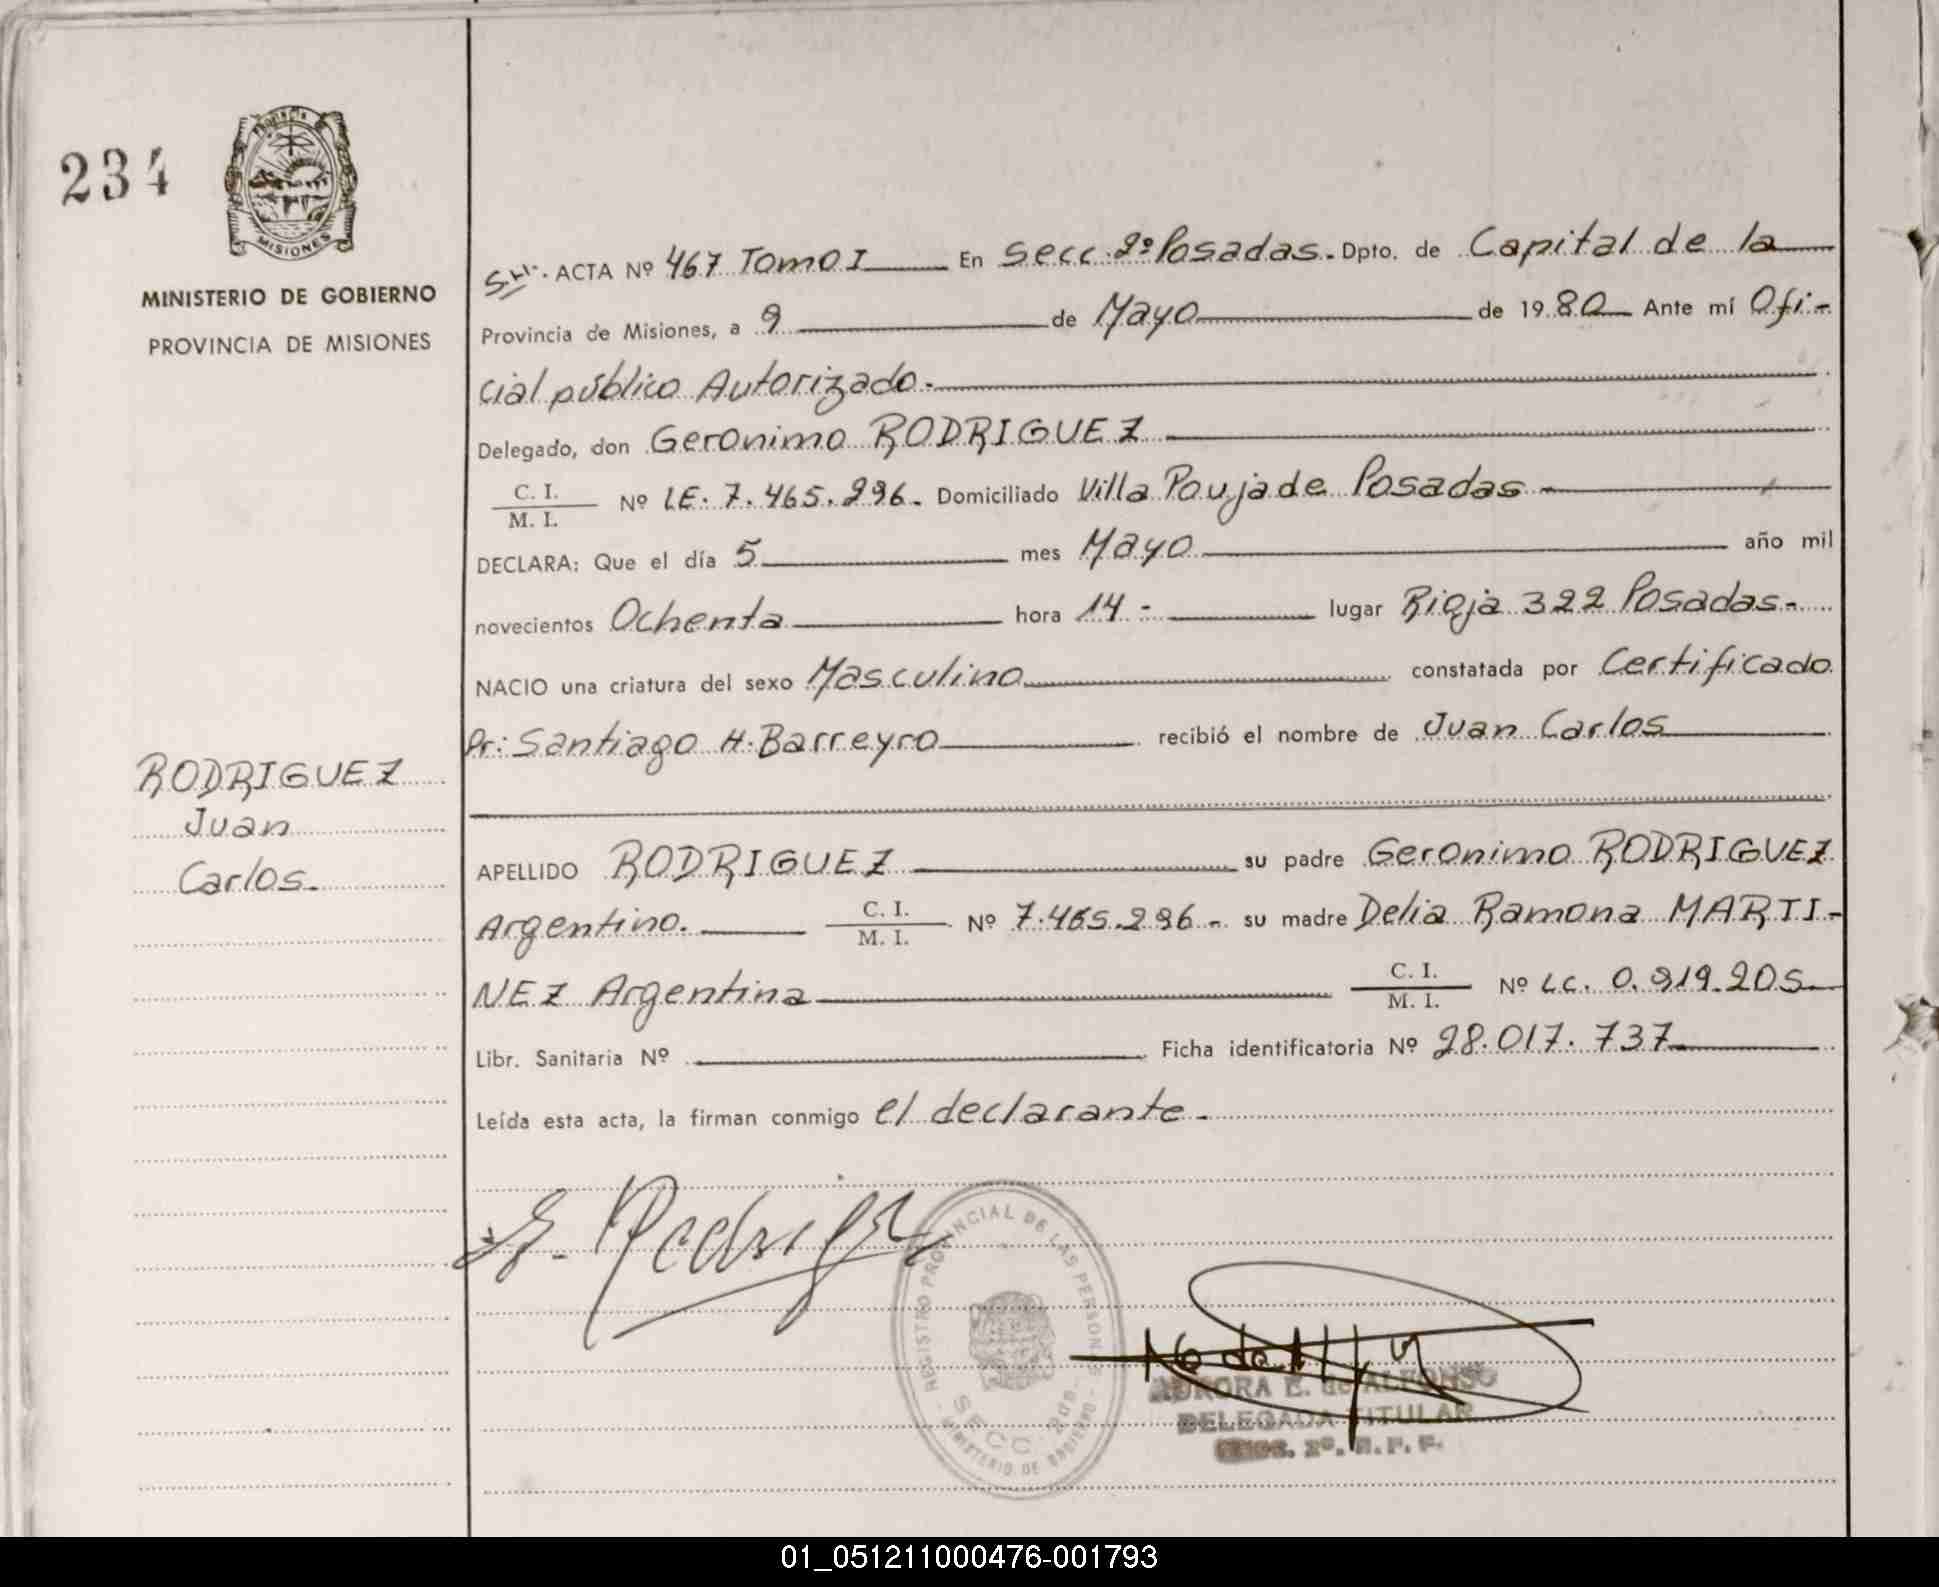 234
Provincia de
MISIONES
MINISTERIO DE GOBIERNO
PROVINCIA DE MISIONES
ACTA Nº 467 Tomo I En Secc. 2º Posadas. Dpto. de Capital de la
Provincia de Misiones, a 9 de Mayo de 1980 Ante mí Ofi-
cial público Autorizado.
Delegado, don Geronimo RODRIGUEZ
C. I.
M. I. Nº LE. 7.465.296. Domiciliado Villa Poujade Posadas
DECLARA: Que el día 5 mes Mayo año mil
novecientos Ochenta hora 14.- lugar Rioja 322 Posadas.
NACIO una criatura del sexo Masculino constatada por Certificado
Dr: Santiago H. Barreyro recibió el nombre de Juan Carlos
RODRIGUEZ
Juan
Carlos.
APELLIDO RODRIGUEZ su padre Geronimo RODRIGUEZ
Argentino. C. I.
M. I. Nº 7.465.296 - su madre Delia Ramona MARTI-
NEZ Argentina C. I.
M. I. Nº LC. 0.919.205
Libr. Sanitaria Nº Ficha identificatoria Nº 28.017.737
Leída esta acta, la firman conmigo el declarante.
G. Rodriguez
REGISTRO PROVINCIAL DE LAS PERSONAS
SECC. 2da.
MINISTERIO DE GOBIERNO
AURORA E. de ALFONSO
DELEGADA TITULAR
SECC. 2º. R. P. P.
01_051211000476-001793